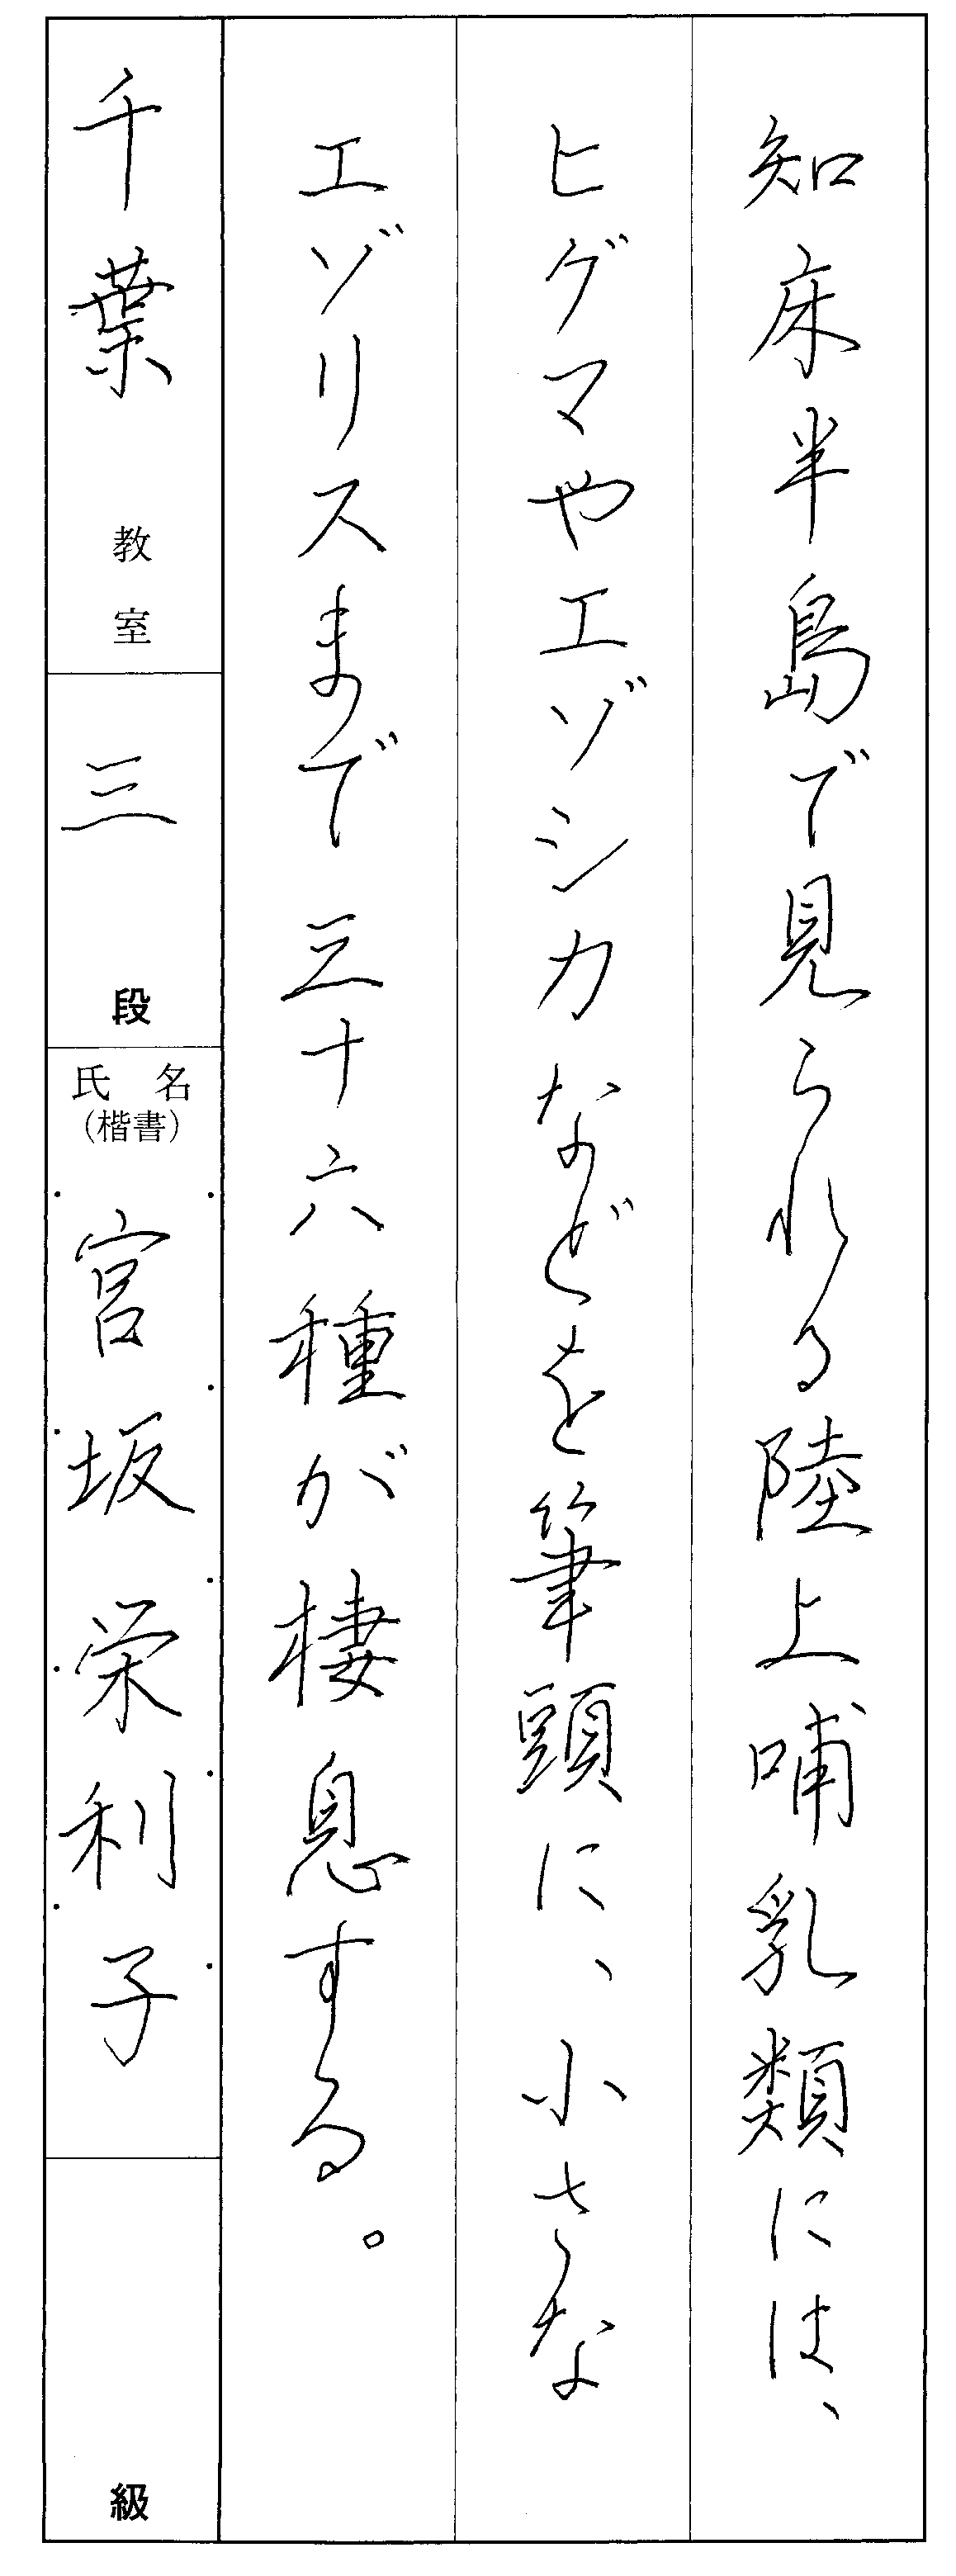 知床半島で見られる陸上哺乳類には、
ヒグマやエゾシカなどを筆頭に、小さな
エゾリスまで三十六種が棲息する。
千葉 教室
三 段
氏名
(楷書)
宮坂栄利子
級